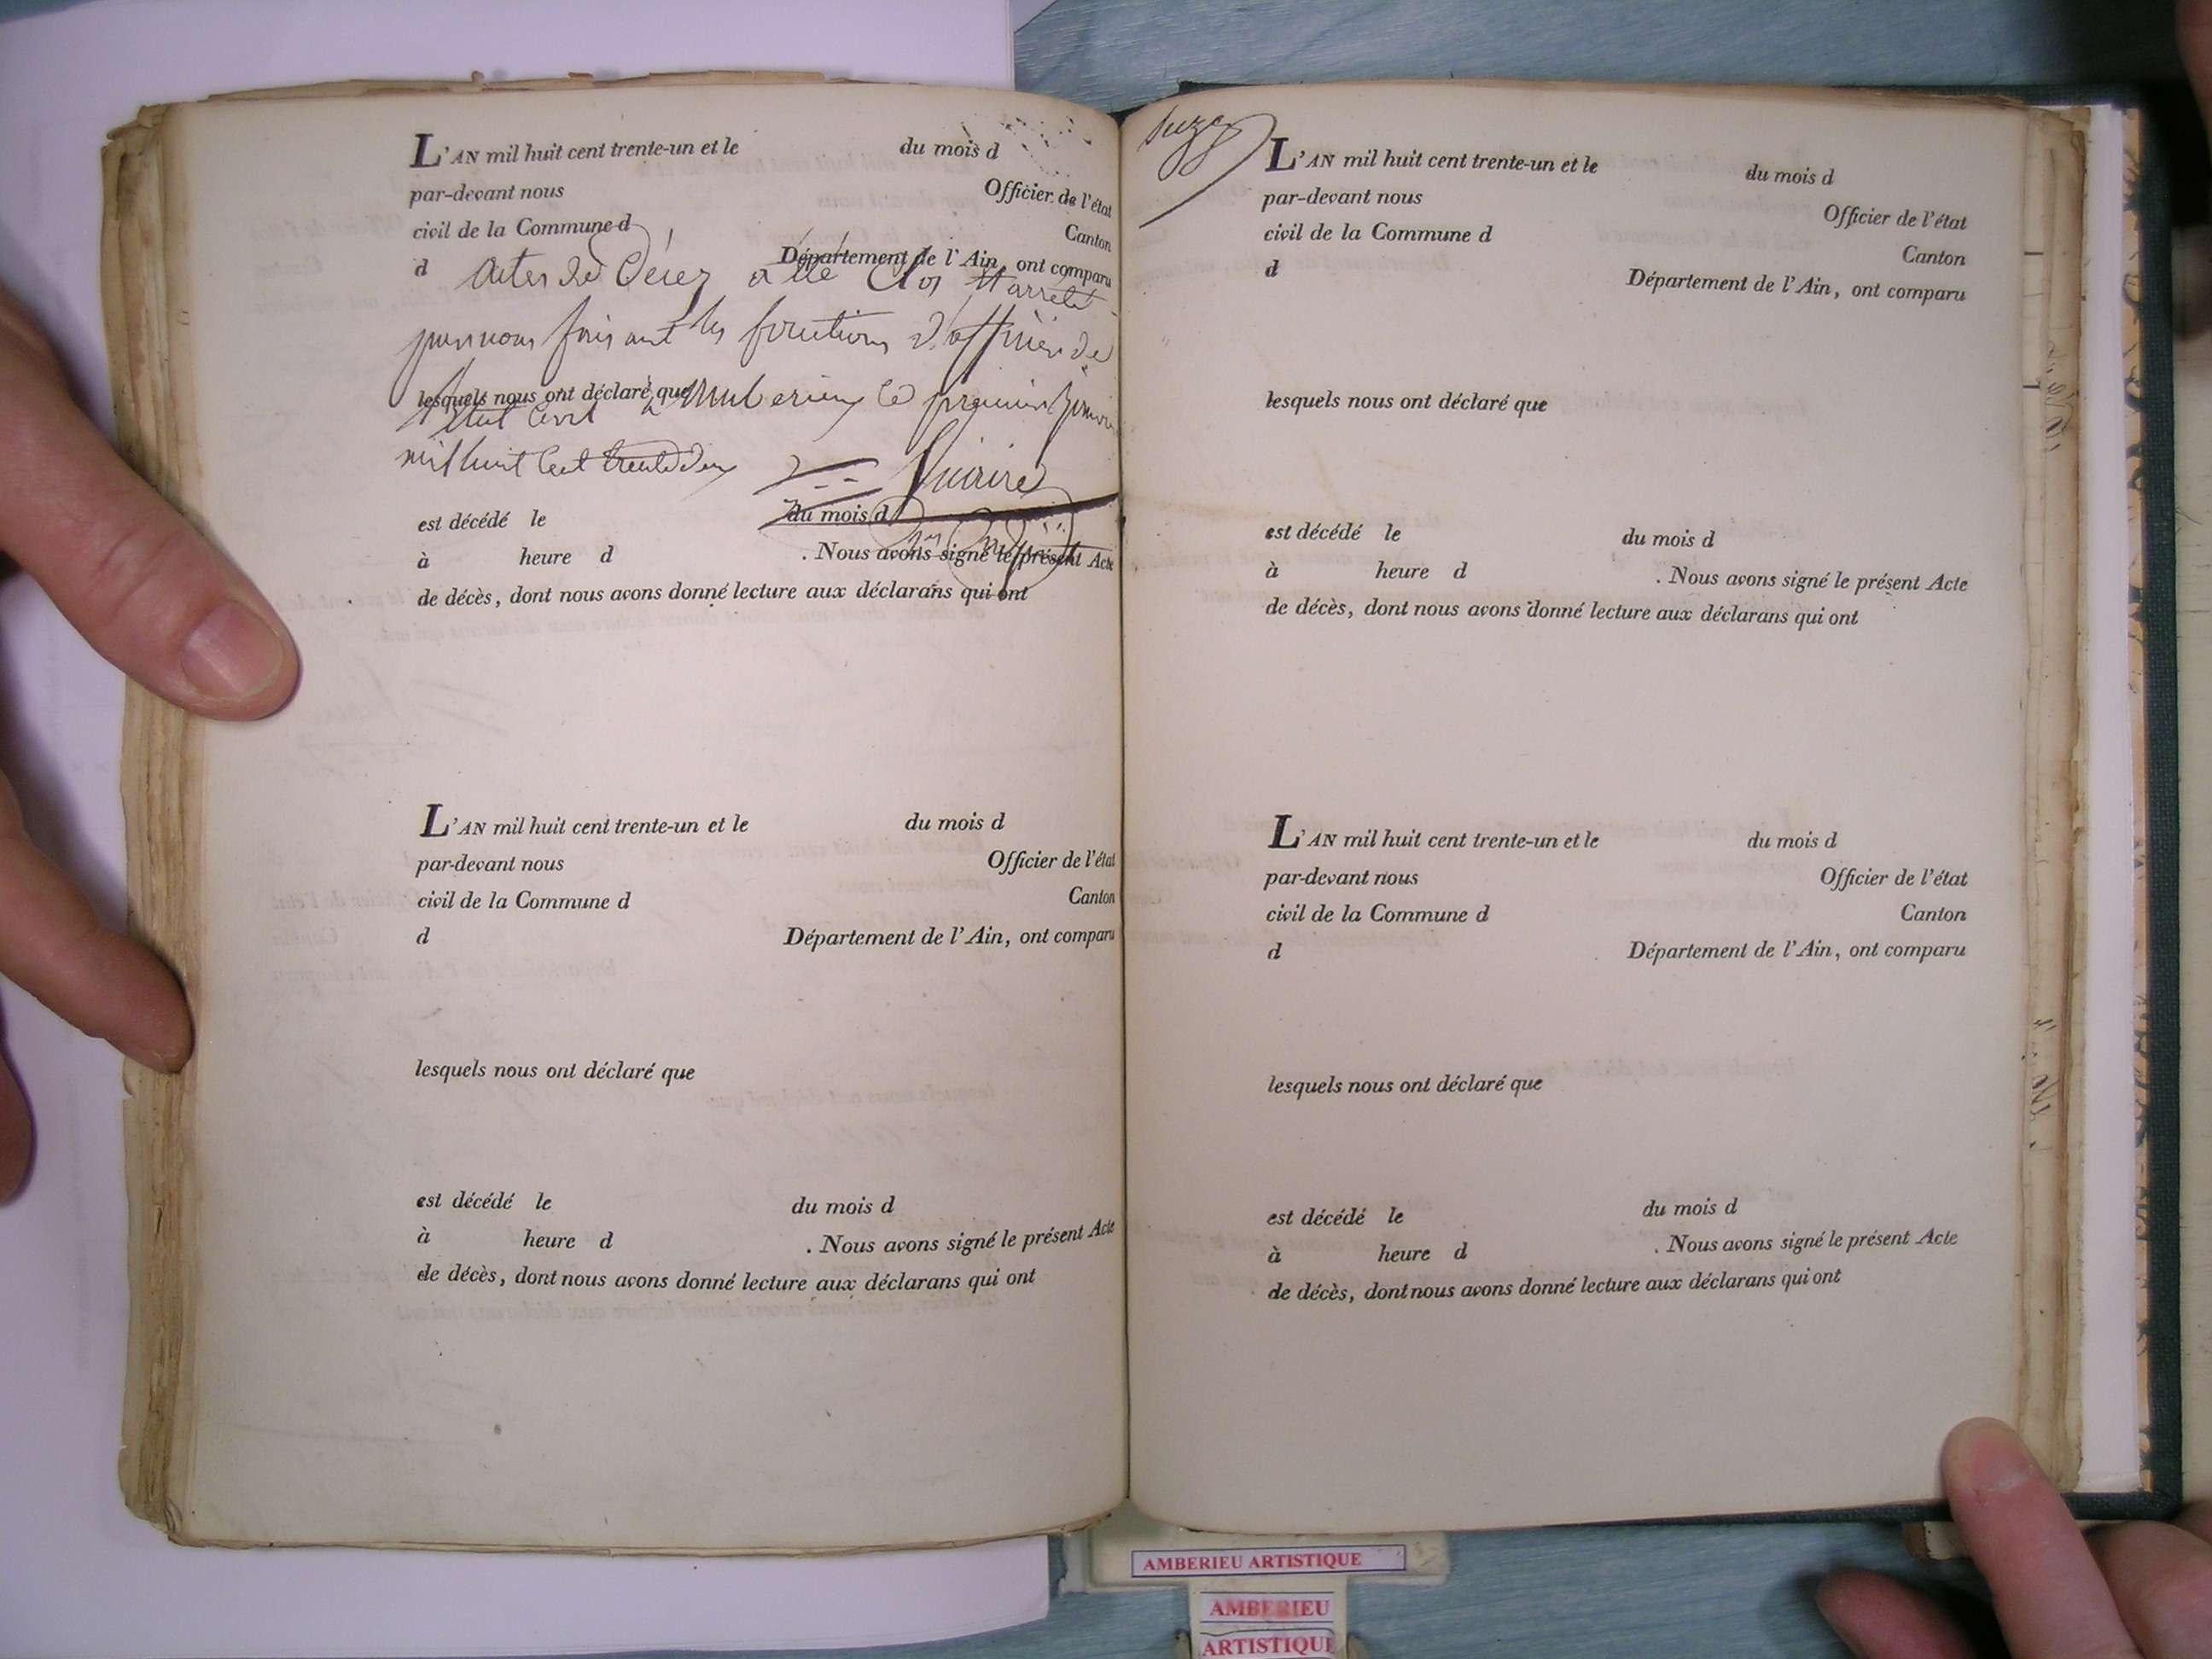 L'AN mil huit cent trente-un et le du mois d
par-devant nous Officier de l'état
civil de la Commune d Canton
d Département de l'Ain, ont comparu
actes de Décez a été Clos & arrêté
par nous faisant les fonctions d'officier de
lesquels nous ont déclaré que
l'état Civil à Amberieux le premier janvier
mil huit Cent trente deux
est décédé le du mois d
à heure d . Nous avons signé le présent Acte
de décès, dont nous avons donné lecture aux déclarans qui ont
L'AN mil huit cent trente-un et le du mois d
par-devant nous Officier de l'état
civil de la Commune d Canton
d Département de l'Ain, ont comparu
lesquels nous ont déclaré que
est décédé le du mois d
à heure d . Nous avons signé le présent Acte
de décès, dont nous avons donné lecture aux déclarans qui ont
L'AN mil huit cent trente-un et le du mois d
par-devant nous Officier de l'état
civil de la Commune d Canton
d Département de l'Ain, ont comparu
lesquels nous ont déclaré que
est décédé le du mois d
à heure d . Nous avons signé le présent Acte
de décès, dont nous avons donné lecture aux déclarans qui ont
L'AN mil huit cent trente-un et le du mois d
par-devant nous Officier de l'état
civil de la Commune d Canton
d Département de l'Ain, ont comparu
lesquels nous ont déclaré que
est décédé le du mois d
à heure d . Nous avons signé le présent Acte
de décès, dont nous avons donné lecture aux déclarans qui ont
AMBERIEU ARTISTIQUE
AMBERIEU
ARTISTIQUE